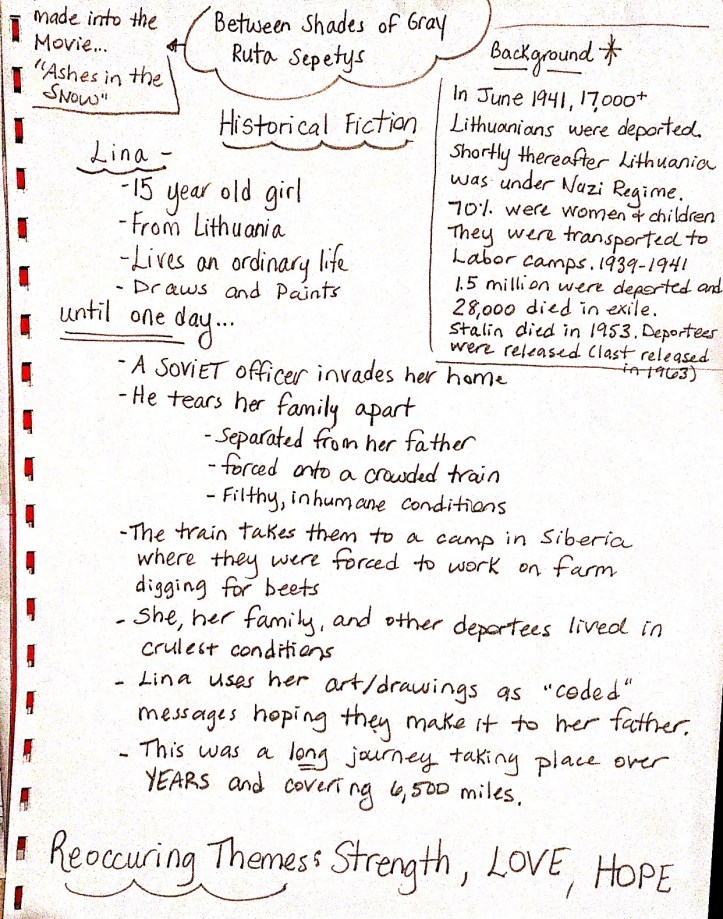 made into the
Movie...
"Ashes in the
Snow"
Between Shades of Gray
Ruta Sepetys
Historical Fiction
Background *
In June 1941, 17,000+
Lithuanians were deported.
Shortly thereafter Lithuania
was under Nazi Regime.
70% were women & children
They were transported to
Labor camps. 1939-1941
1.5 million were deported and
28,000 died in exile.
Stalin died in 1953. Deportees
were released (last released
in 1963)
Lina -
-15 year old girl
-From Lithuania
-Lives an ordinary life
- Draws and Paints
until one day...
- A SOVIET officer invades her home
- He tears her family apart
- Separated from her father
- forced onto a crowded train
- Filthy, inhumane conditions
-The train takes them to a camp in Siberia
where they were forced to work on farm
digging for beets
- She, her family, and other deportees lived in
crulest conditions
- Lina uses her art/drawings as "coded"
messages hoping they make it to her father.
- This was a long journey taking place over
YEARS and covering 6,500 miles.
Reoccuring Themes: Strength, LOVE, HOPE